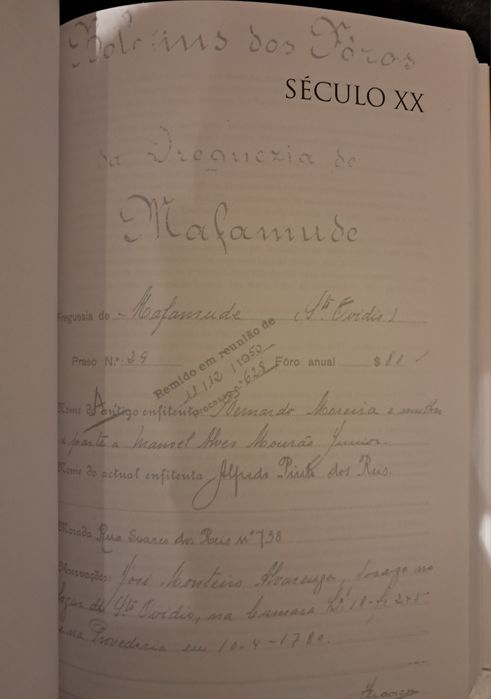 Boletins dos Fóros
SÉCULO XX
da Freguezia de
Mafamude
Freguesia de Mafamude (Stº Ovidio)
Praso N.º 29
Remido em reunião de
11/12/1950
Processo nº 629
Fôro anual $80
Nome do Antigo enfiteuta Bernardo Moreira e mulher
e parte a Manoel Alves Mourão Junior.
Nome do actual enfiteuta Alfredo Pinto dos Reis.
Morada Rua Soares dos Reis nº 738
Observações: José Monteiro Alvarenga, no
logar de Stº Ovidio, na Camara Lº 10-fs 245
e na Provedoria em 10-4-1780.